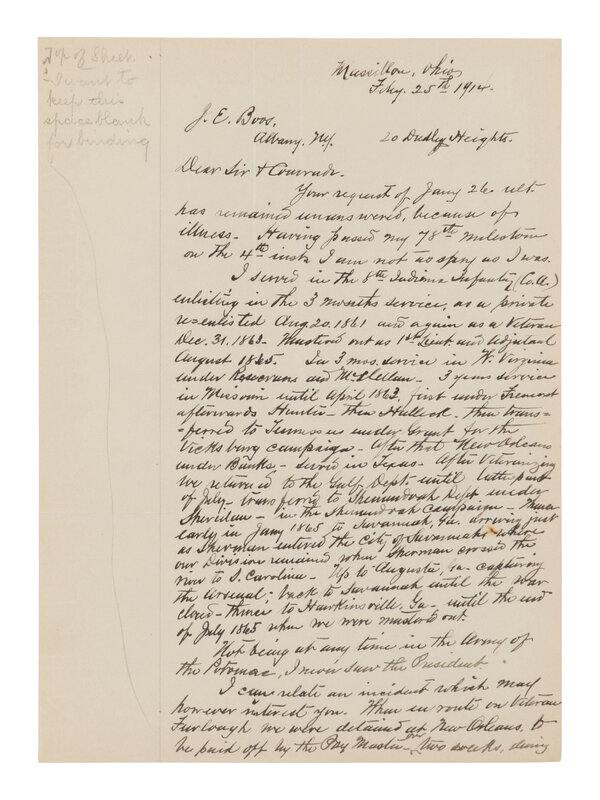 Top of Sheet.
- I want to
keep this
space blank
for binding
Massillon, Ohio,
Feby. 25th 1914.
J. E. Boos,
Albany, Ny. 20 Dudley Heights.
Dear Sir & Comrade.
Your request of Jany 26 ult.
has remained unanswered, because of
illness - Having passed my 78th milestone
on the 4th inst. I am not as spry as I was.
I served in the 8th Indiana Infantry (Co. A.)
enlisting in the 3 months service, as a private
re-enlisted Aug. 20. 1861 and again as a Veteran
Dec. 31. 1863. Mustered out as 1st Lieut and Adjutant
August 1865. In 3 mos. service in W. Virginia
under Rosecrans and McClellan - 3 years service
in Missouri until April 1863, first under Fremont
afterwards Hunter - then Halleck. then trans-
-ferred to Tennessee under Grant for the
Vicksburg campaign - After that New Orleans
under Banks - served in Texas - After Veteranizing
we returned to the Gulf Dept. until latter part
of July - transferred to Shenandoah Dept under
Sheridan - in the Shenandoah Campaign - thence
early in Jany 1865 to Savannah, Ga. arriving just
as Sherman entered the City of Savannah - where
our Division remained when Sherman crossed the
river to S. Carolina - Up to Augusta, Ga - capturing
the Arsenal; back to Savannah until the war
closed - thence to Hawkinsville, Ga - until the end
of July 1865 when we were mustered out.
Not being at any time in the Army of
the Potomac, I never saw the President.
I can relate an incident which may
however interest you. When in route on Veteran
Furlough we were detained at New Orleans, to
be paid off by the Pay Master - two weeks, during